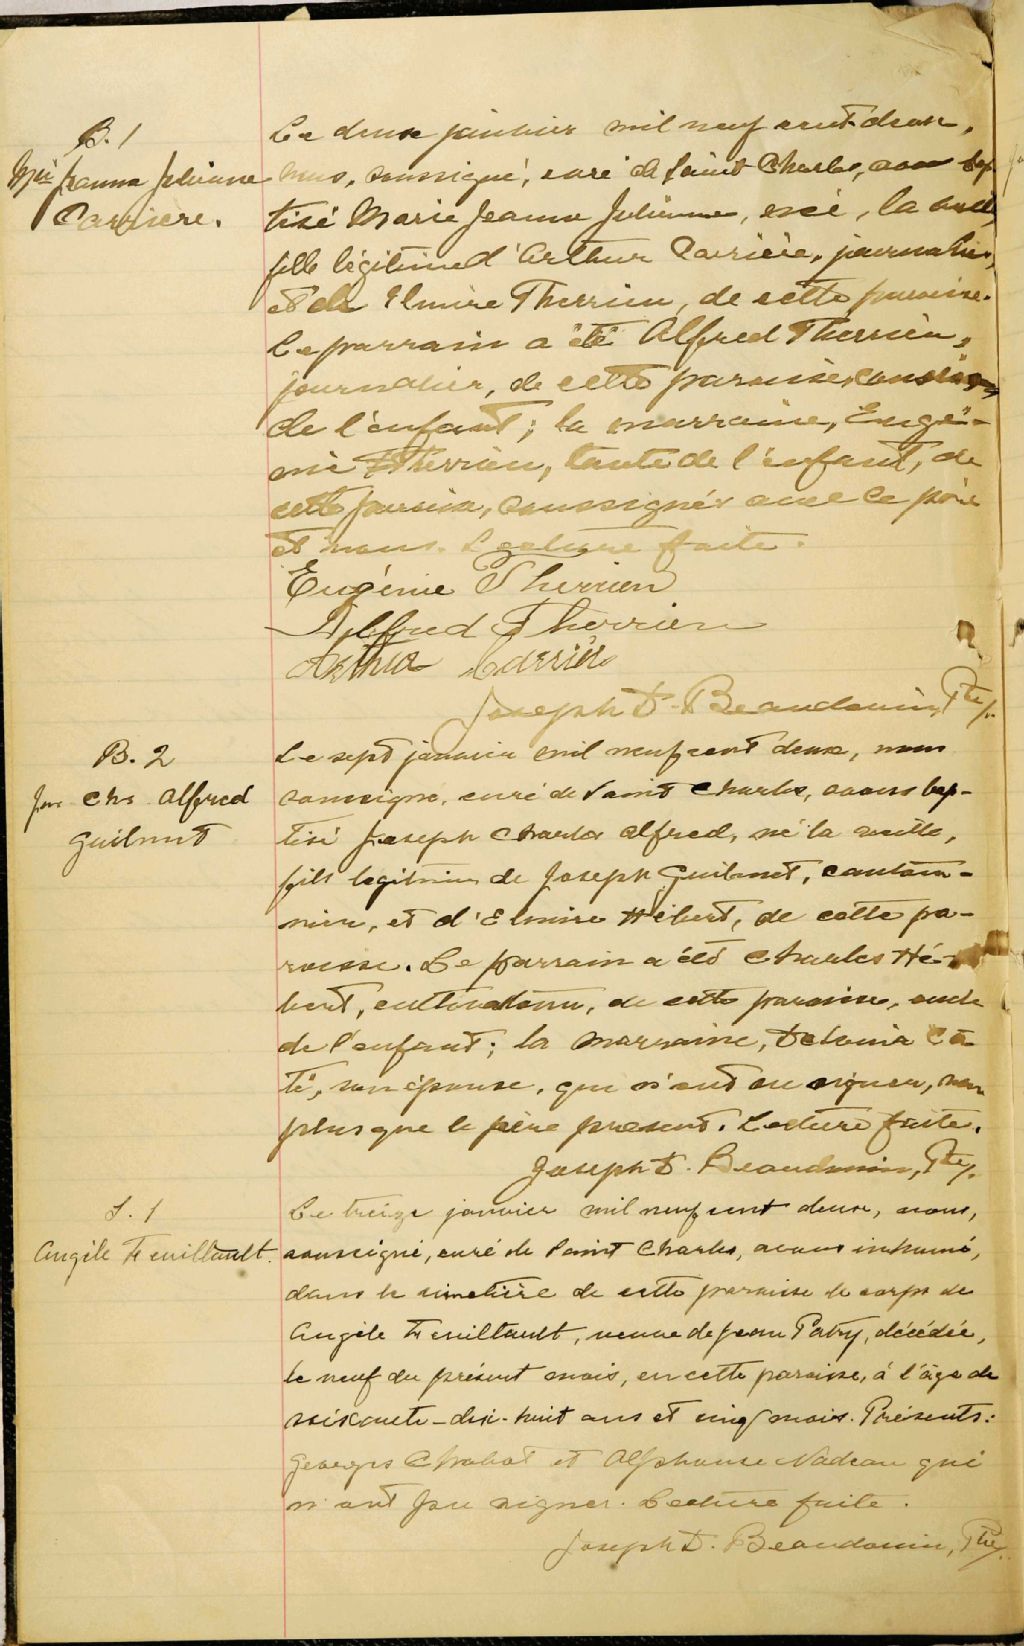 B. 1
Mie Jeanne Julienne
Carrière.
Le deux janvier mil neuf cent deux,
nous, soussigné, curé de Saint Charles, avons bap-
tisé Marie Jeanne Julienne, née, la veille,
fille légitime d'Arthur Carrière, journalier,
et de Elmire Therrien, de cette paroisse.
Le parrain a été Alfred Therrien,
journalier, de cette paroisse,
de l'enfant; la marraine, Eugé-
nie Therrien, tante de l'enfant, de
cette paroisse, soussignés avec le père
et nous. Lecture faite.
Eugénie Therrien
Alfred Therrien
Arthur Carrière
Joseph D. Beaudouin, Ptre.
B. 2
Jos Chs Alfred
Guilmet
Le sept janvier mil neuf cent deux, nous
soussigné, curé de Saint Charles, avons bap-
tisé Joseph Charles Alfred, né la veille,
fils légitime de Joseph Guilmet, canton-
nier, et d'Elmire Hébert, de cette pa-
roisse. Le parrain a été Charles Hé-
bert, cultivateur, de cette paroisse, oncle
de l'enfant; la marraine, Co-
té, son épouse, qui n'ont su signer, non
plus que le père présent. Lecture faite.
Joseph D. Beaudouin, Ptre.
S. 1
Angèle Feuilltault.
Le treize janvier mil neuf cent deux, nous,
soussigné, curé de Saint Charles, avons inhumé,
dans le cimetière de cette paroisse le corps de
Angèle Feuilltault, veuve de Jean Patry, décédée,
le neuf du présent mois, en cette paroisse, à l'âge de
soixante-dix-huit ans et cinq mois. Présents:
Georges Chabot et Alphonse Nadeau qui
n'ont pu signer. Lecture faite.
Joseph D. Beaudouin, Ptre.